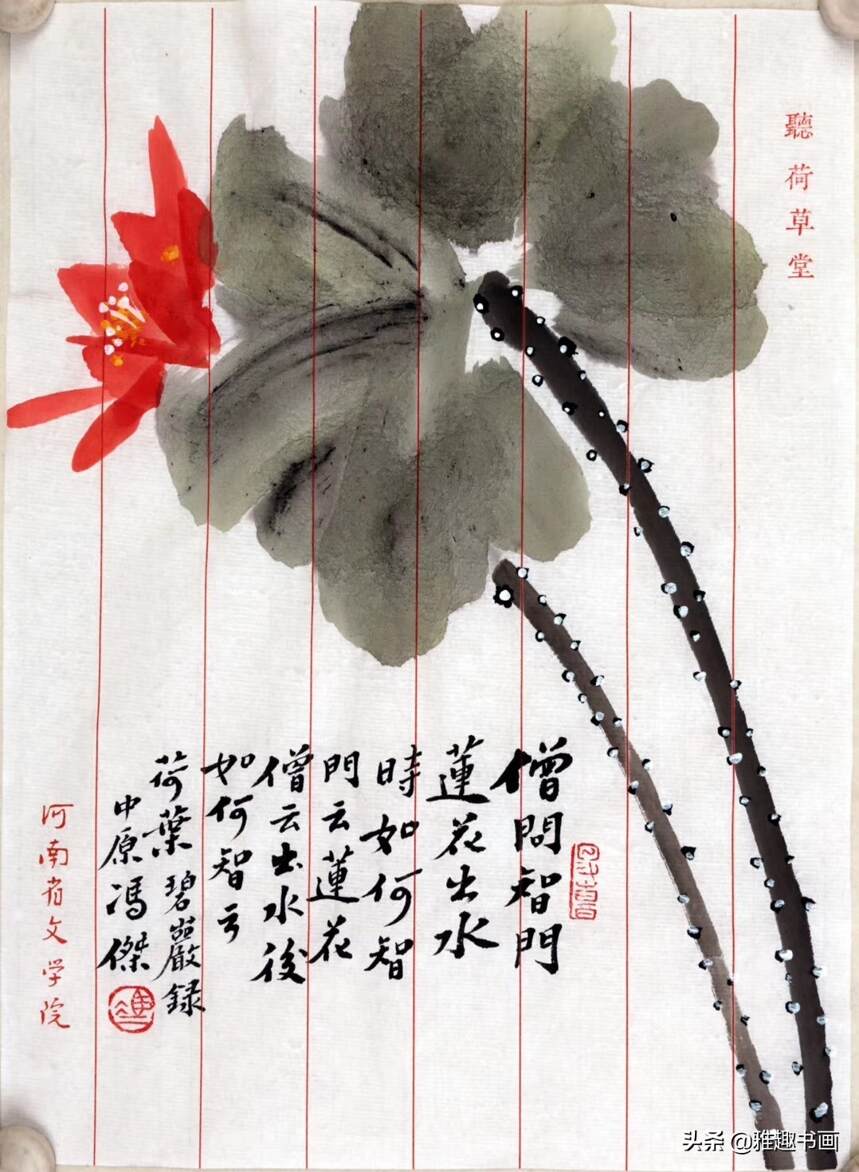 聽荷草堂
僧問智門
蓮花出水
時如何智
門云蓮花
僧云出水後
如何智云
荷葉 碧巖録
中原馮傑
河南省文学院
头条 @雅趣书画